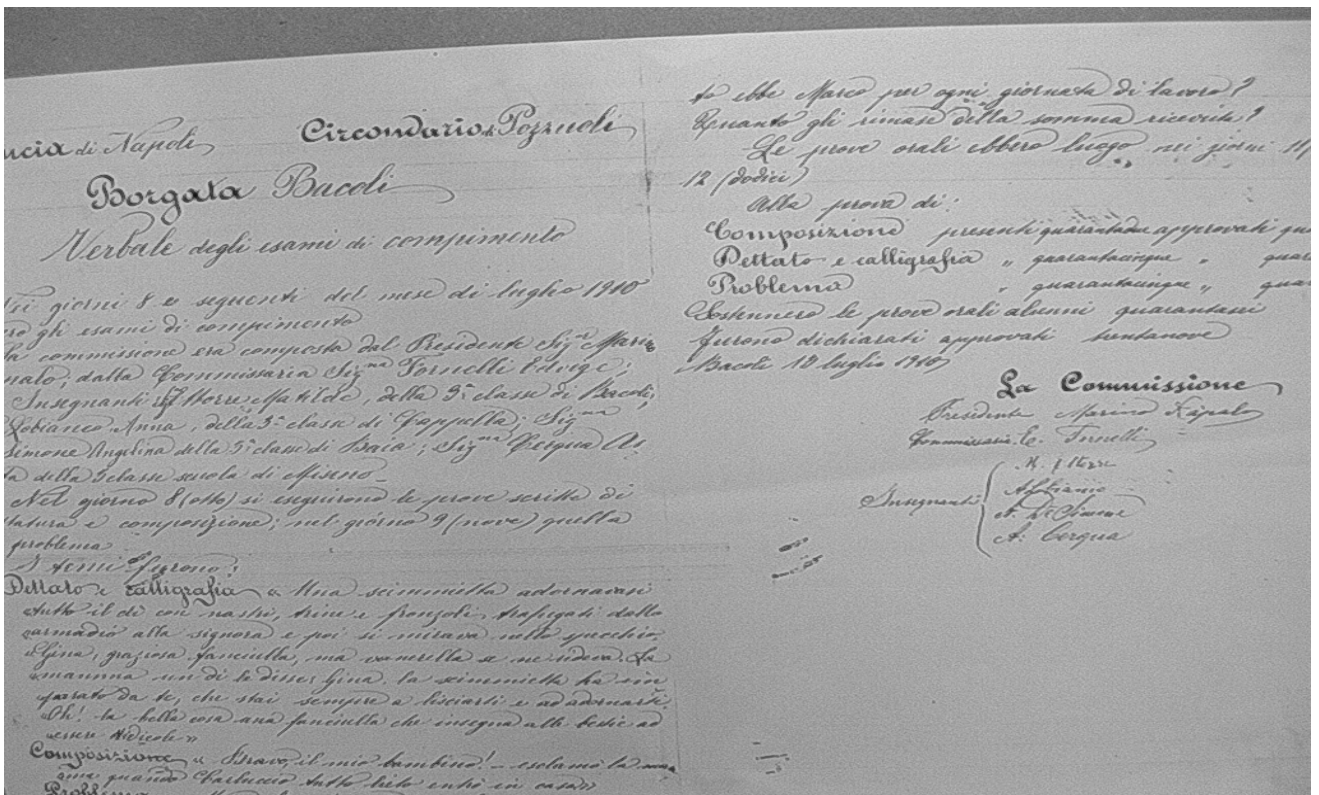 ncia di Napoli Circondario di Pozzuoli
Borgata Bacoli
Verbale degli esami di compimento
giorni 8 e seguenti del mese di luglio 1910
gli esami di compimento
la commissione era composta dal Presidente Sig.r Marino
dalla Commissaria Sig.na Tornelli Edvige;
Insegnanti Matilde della 3ª classe di Bacoli,
Lobianco Anna, della 3ª classe di Cappella; Sig.na
Simone Angelina della 3ª classe di Baia; Sig.na Cerqua As
ta della 3 classe scuola di Miseno
Nel giorno 8 (otto) si eseguirono le prove scritte di
tatura e composizione; nel giorno 9 (nove) quella
problema
I temi furono:
Dettato e calligrafia « Una scimmietta adornavasi
tutto il dì con nastri, trine e fronzoli, trafugati dallo
armadio alla signora e poi si mirava nello specchio.
Gina, graziosa fanciulla, ma vanerella se ne rideva. La
mamma un dì le disse: Gina, la scimmietta ha im
parato da te, che stai sempre a lisciarti e ad adornarti.
Oh! la bella cosa una fanciulla che insegna alle bestie ad
essere ridicole »
Composizione « Bravo, il mio bambino! – esclamò la mam
ma quando Carluccio tutto lieto entrò in casa »
Problema
to ebbe Marco per ogni giornata di lavoro?
Quanto gli rimase della somma ricevuta?
Le prove orali ebbero luogo nei giorni 11,
12 (dodici)
Alla prova di:
Composizione presenti quarantadue approvati qua
Dettato e calligrafia „ quarantacinque „ quar
Problema „ quarantacinque „ quar
Sostennero le prove orali alunni quarantasei
furono dichiarati approvati trentanove
Bacoli 12 luglio 1910
La Commissione
Presidente Marino
Commissaria E. Tornelli
Insegnanti
A. Lobianco
A. De Simone
A. Cerqua